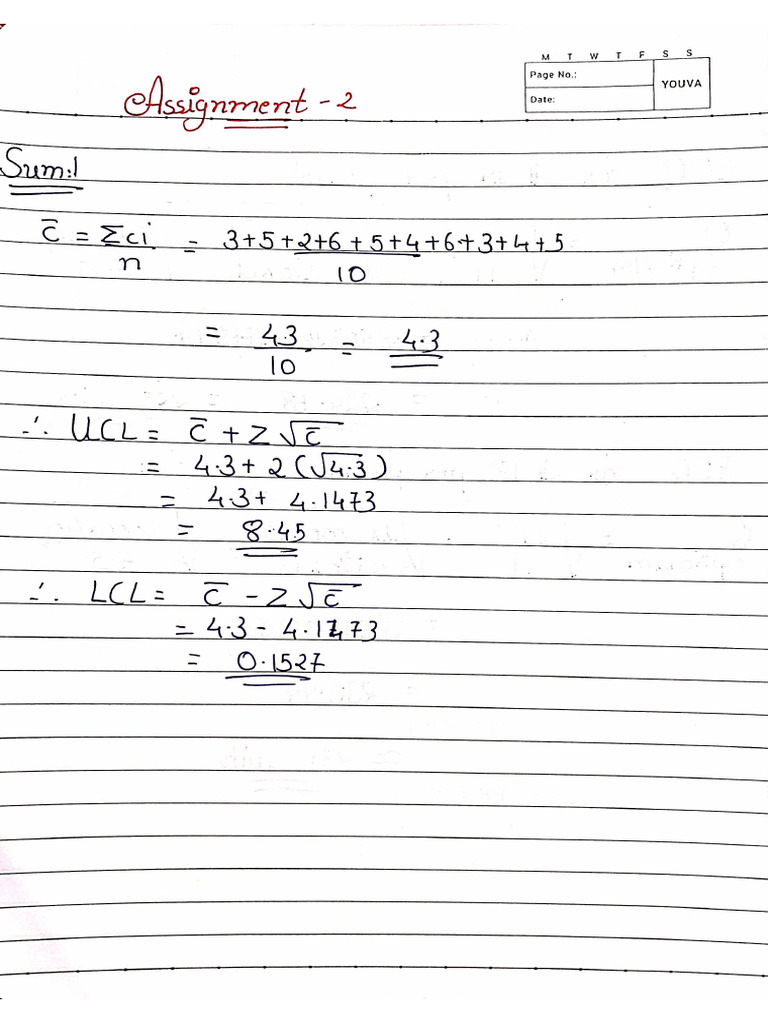 M T W T F S S
Page No.:
YOUVA
Date:
Assignment - 2
Sum:1
c̄ = Σci / n = 3+5+2+6+5+4+6+3+4+5 / 10
= 43 / 10 = 4.3
∴ UCL = c̄ + Z√c̄
= 4.3 + 2(√4.3)
= 4.3 + 4.1473
= 8.45
∴ LCL = c̄ - Z√c̄
= 4.3 - 4.1473
= 0.1527